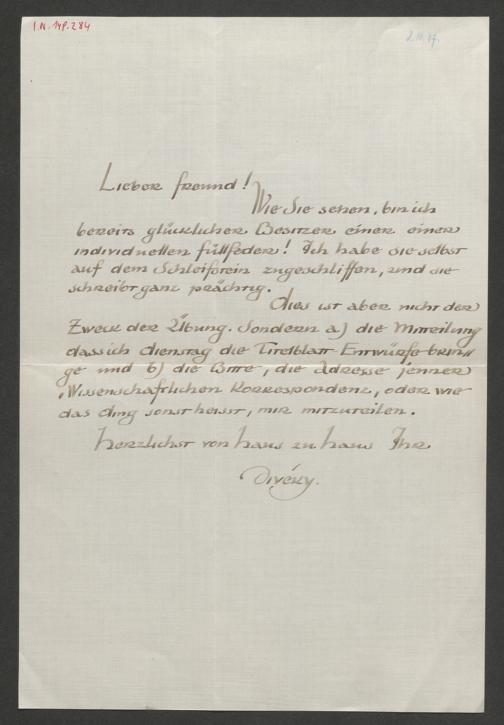 I.N. 149.284
Lieber Freund!
Wie Sie sehen, bin ich
bereits glücklicher Besitzer einer einer
individuellen Füllfeder! Ich habe sie selbst
auf dem Schleifstein zugeschliffen, und sie
schreibt ganz prächtig.
Dies ist aber nicht der
Zweck der Übung. Sondern a) die Mitteilung
dass ich Dienstag die Titelblatt-Entwürfe brin-
ge und b) die Bitte, die Adresse jenner
„Wissenschaftlichen Korrespondenz, oder wie
das Ding sonst heisst, mir mitzuteilen.
Herzlichst von Haus zu Haus Ihr
Divéky.